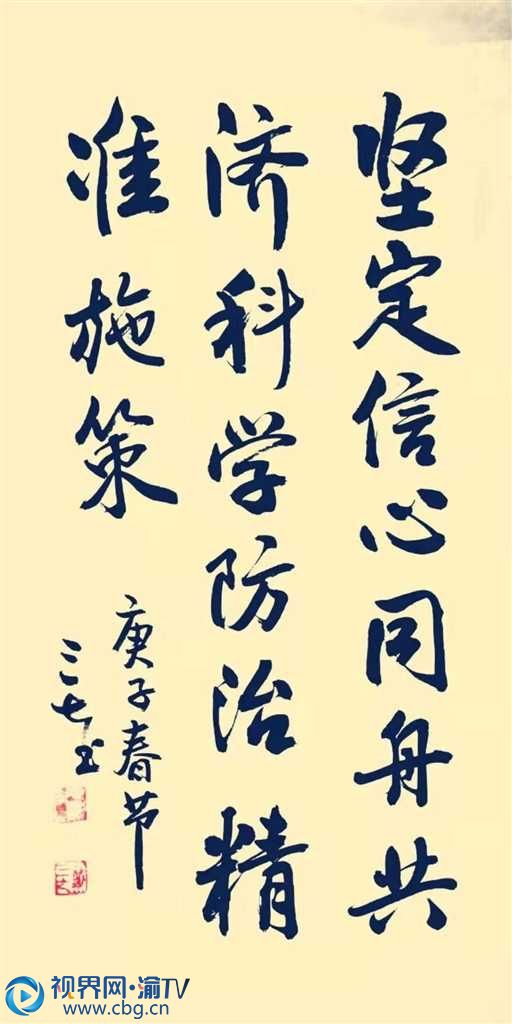 坚定信心同舟共
济科学防治精
准施策
庚子春节
三七书
视界网·渝TV
www.cbg.cn